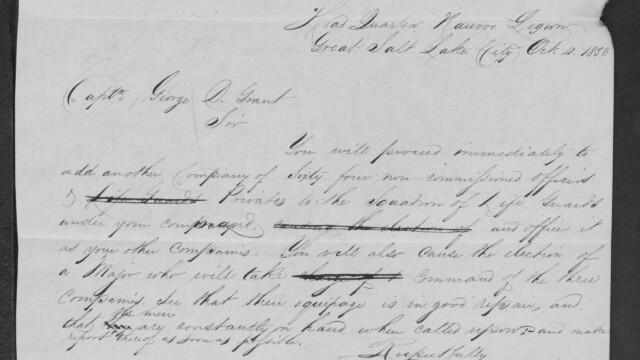 Head Quarters Nauvoo Legion
Great Salt Lake City Oct. 4. 1850
Captn George D. Grant
Sir
You will proceed immediately to
add another Company of Sixty four non-commissioned officers
& Life Guards Privates to the Squadron of Life Guards
under your command. causing the election of and officer it
as your other Companies. You will also cause the election of
a Major who will take command of the three
Companies. See that their equipage is in good repair, and
that the men are constantly on hand when called upon, and make
report thereof as soon as possible.
Respectfully